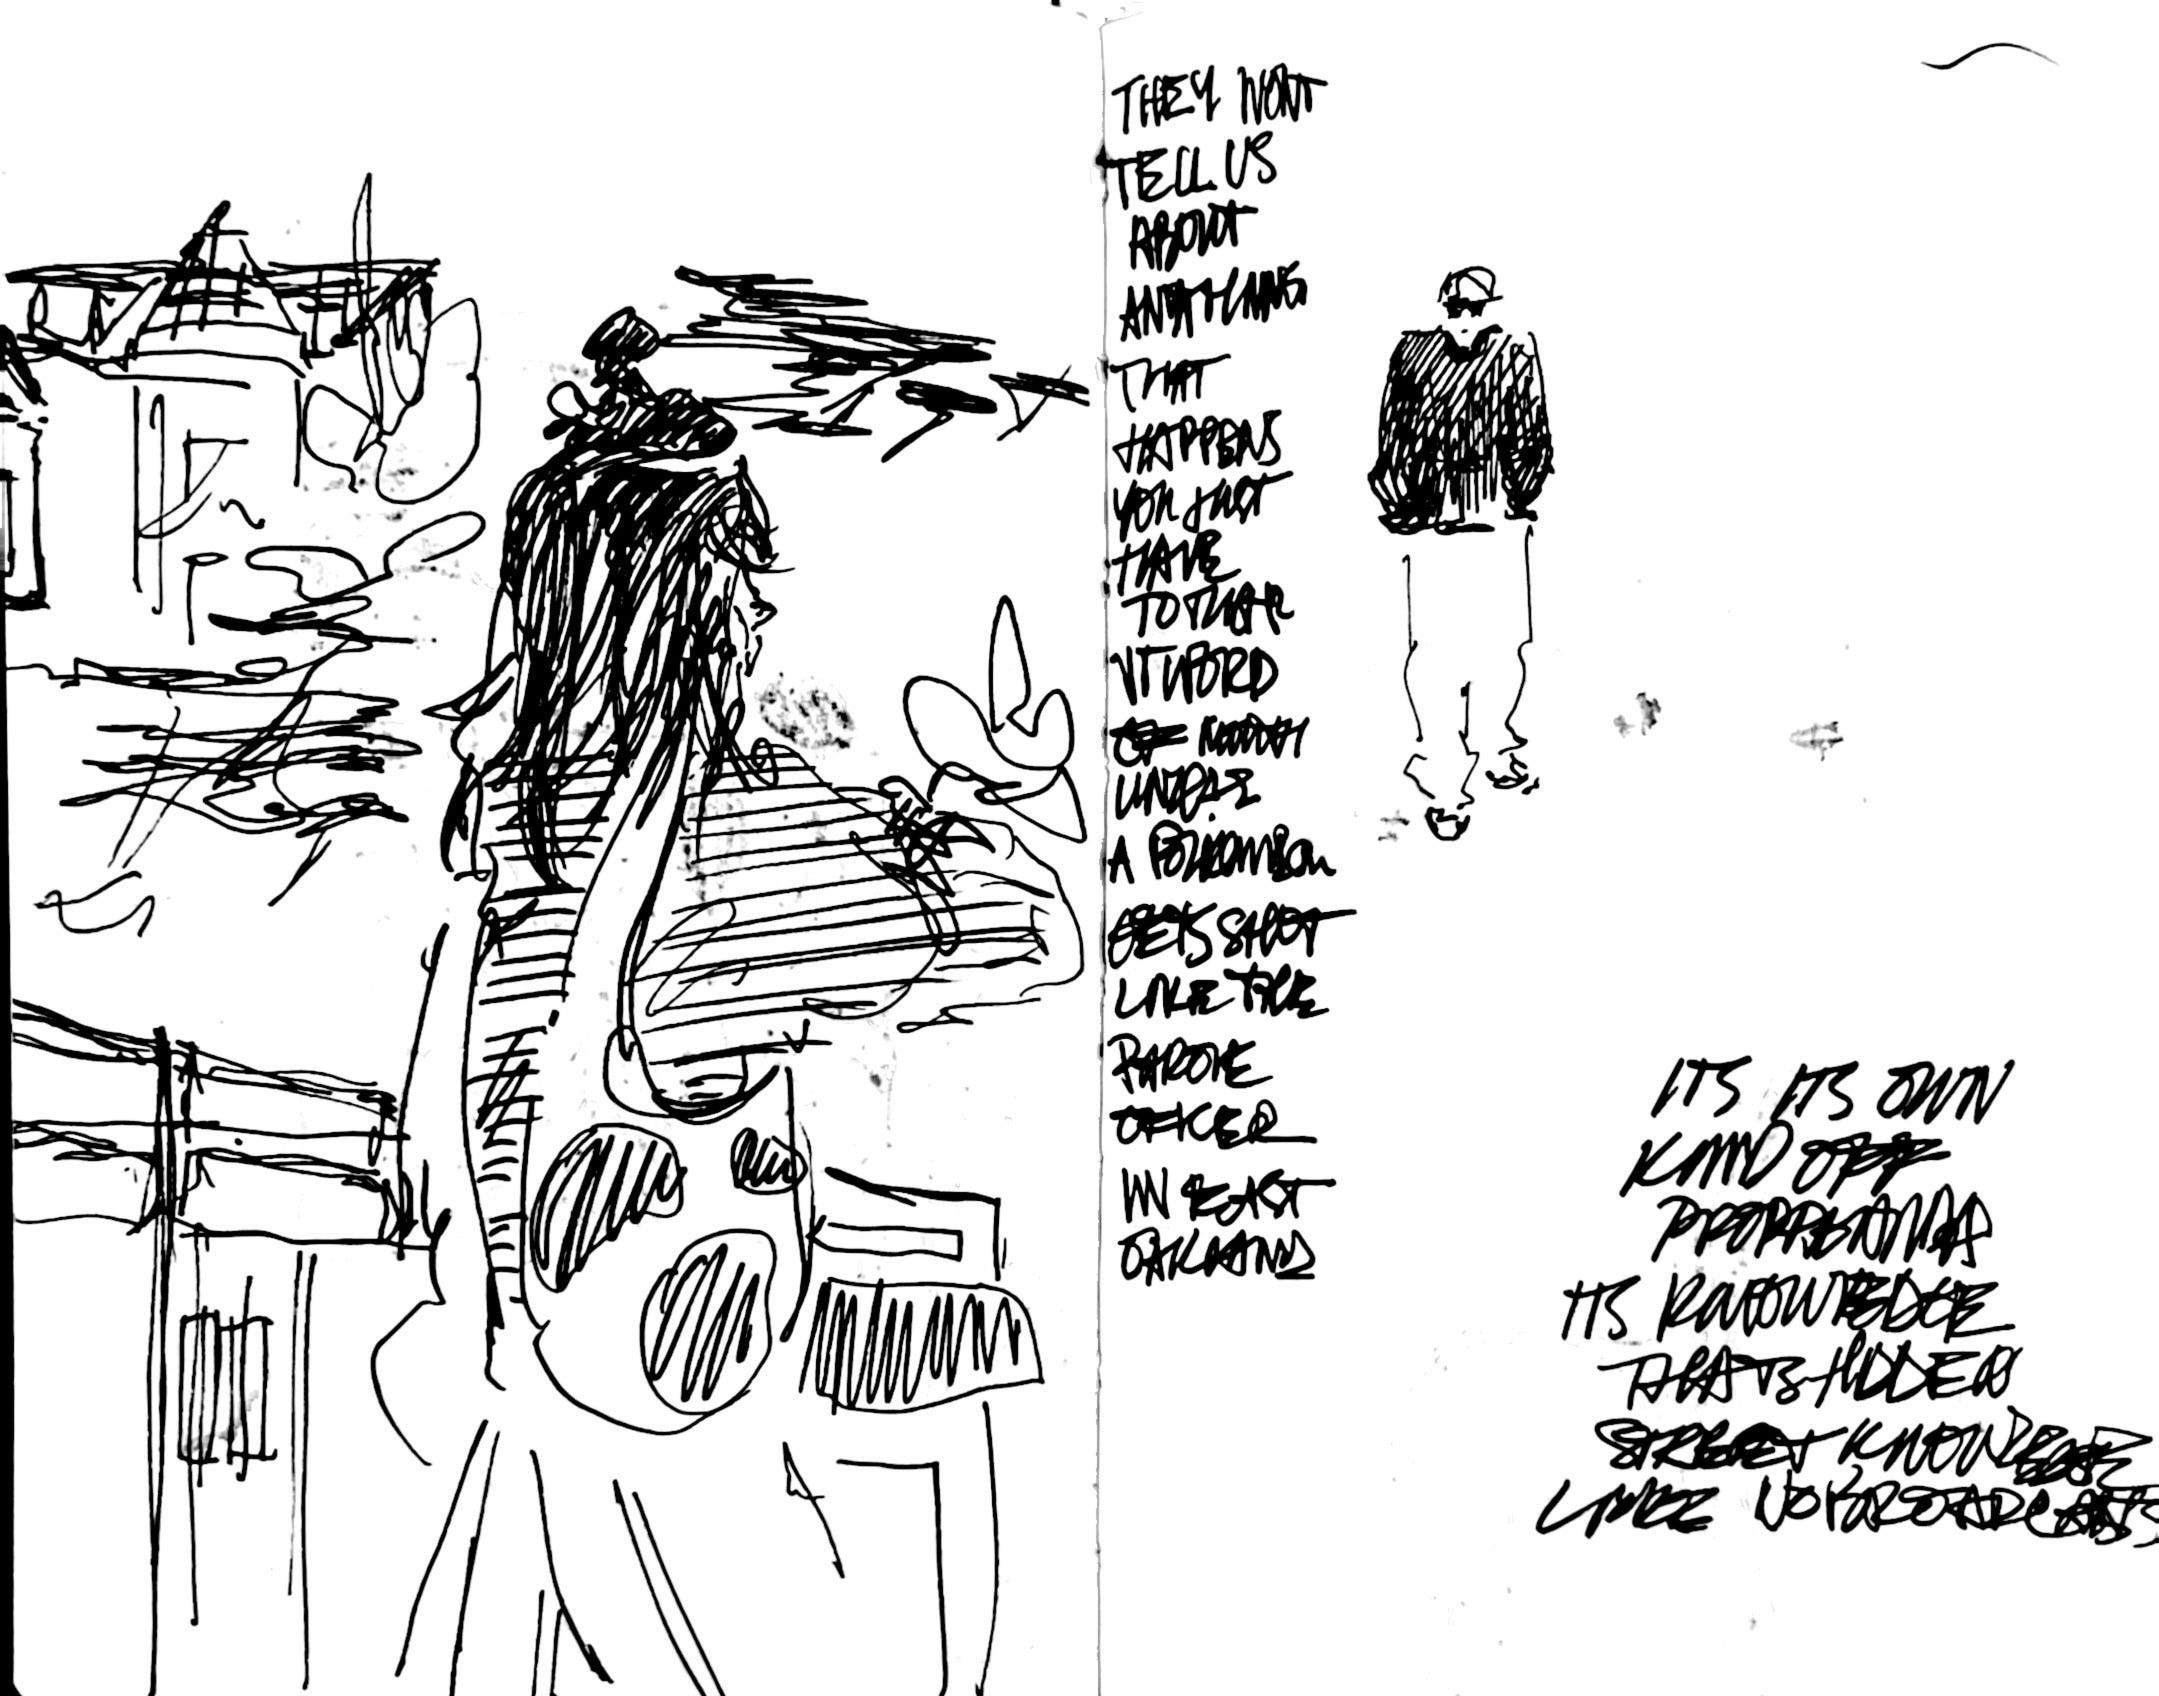 THEY WONT
TELL US
ABOUT
ANYTHING
THAT
HAPPENS
YOU JUST
HAVE
TO THAR
IT WORD
OF MOUTH
UNTIL
A POLICEMAN
GETS SHOT
LIKE THE
PAROLE
OFICER
IN EAST
OAKLAND
ITS ITS OWN
KIND OFF
ITS KNOWLEDGE
THATS HIDDEN
STREET
LIKE